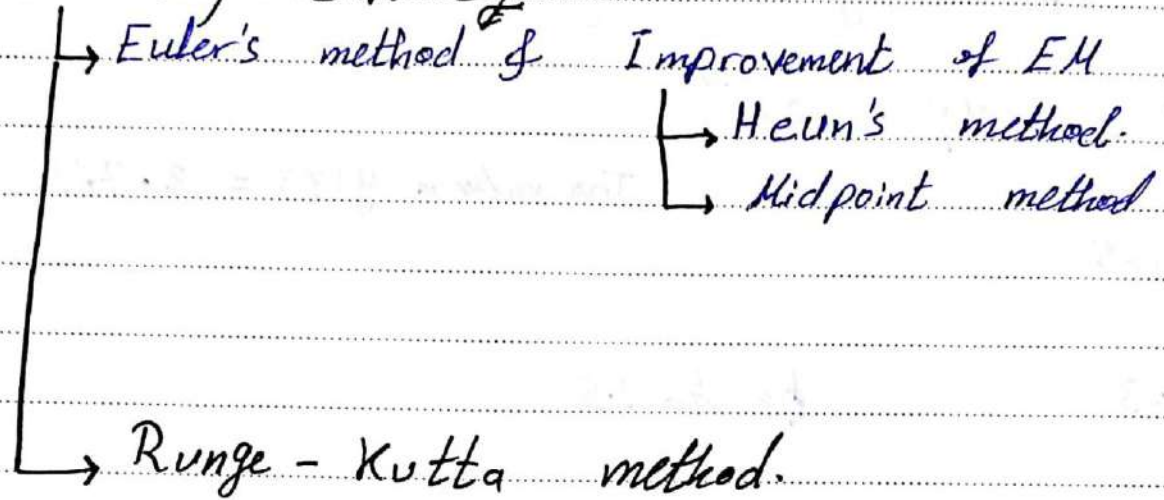 Euler's method & Improvement of EM
Heun's method.
Midpoint method
Runge - Kutta method.